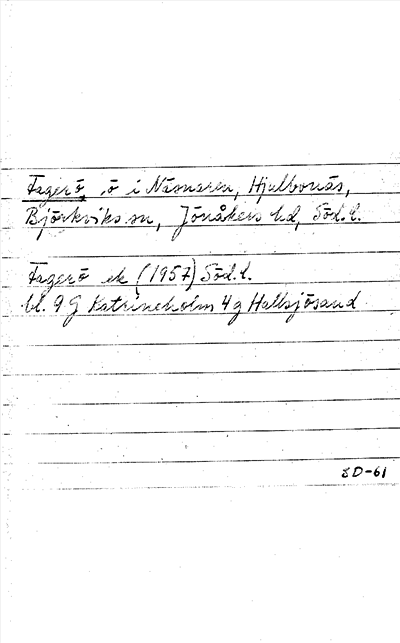 Fagerö, ö i Näsnaren, Hjälbonäs,
Björkviks sn, Jönåkers hd, Söd. l.
Fagerö ek (1957) Söd. l.
bl. 9 G Katrineholm 4 g Hallsjösand
SD-61